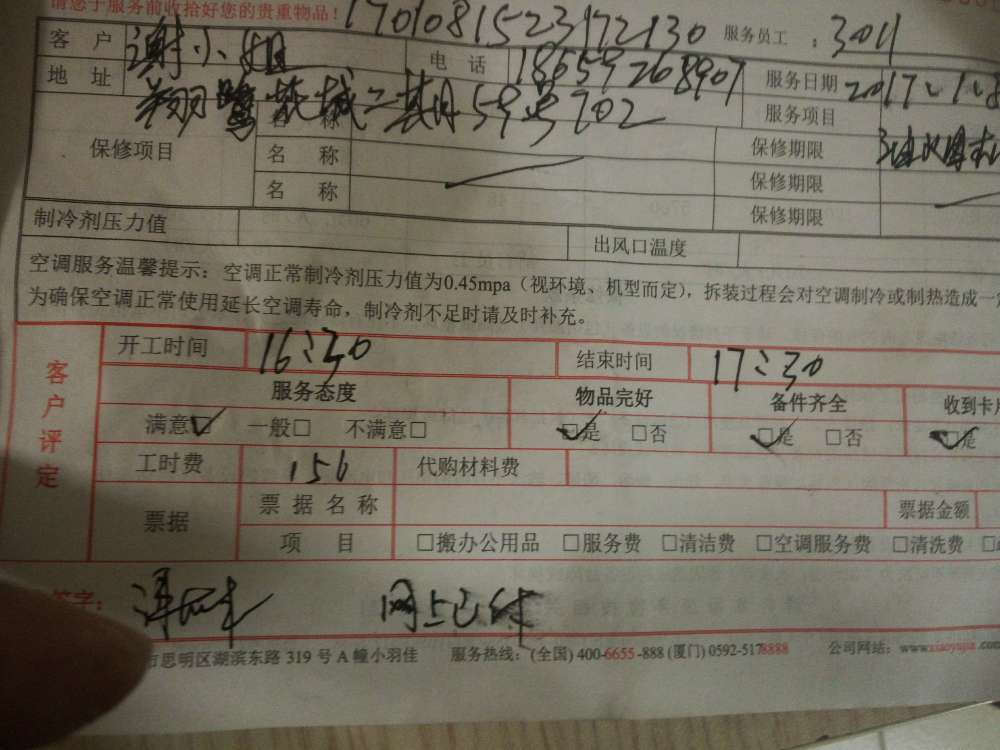 请您于服务前收拾好您的贵重物品！ 1701081523172130 服务员工：3011
客 户 谢小姐 电 话 18659268907 服务日期 2017.1.8
地 址 翔鹭花城二期59号702 服务项目
保修项目 名 称 保修期限
名 称 保修期限
名 称 保修期限
制冷剂压力值 出风口温度
空调服务温馨提示：空调正常制冷剂压力值为0.45mpa（视环境、机型而定），拆装过程会对空调制冷或制热造成一
为确保空调正常使用延长空调寿命，制冷剂不足时请及时补充。
客户评定
开工时间 16:30 结束时间 17:30
服务态度 物品完好 备件齐全 收到卡
满意☑ 一般□ 不满意□ ☑是 □否 ☑是 □否 ☑是
工时费 156 代购材料费
票据 票 据 名 称 票据金额
项 目 □搬办公用品 □服务费 □清洁费 □空调服务费 □清洗费
签字： 网上已付
市思明区湖滨东路 319 号 A 幢小羽佳 服务热线：(全国) 400-6655-888 (厦门) 0592-5178888 公司网站：www.xiaoyujia.com